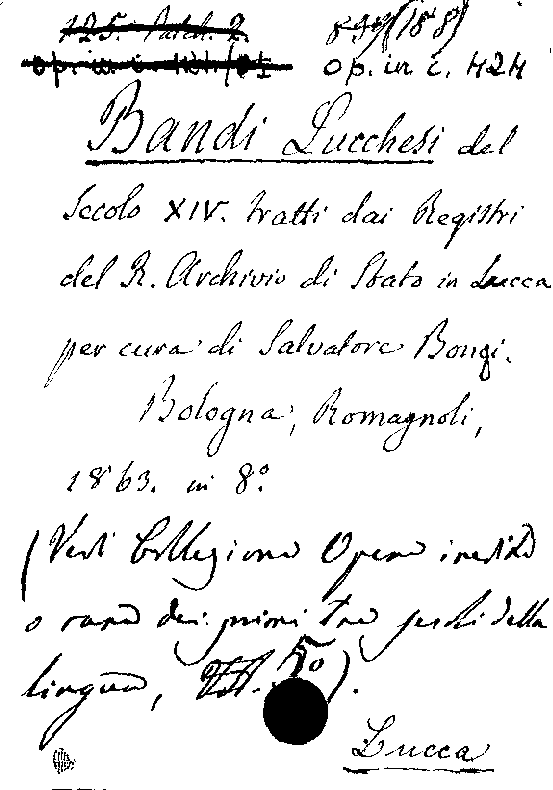 125. Palch. 2.
op. in c. 424
Bandi Lucchesi del
Secolo XIV. tratti dai Registri
del R. Archivio di Stato in Lucca
per cura di Salvatore Bongi.
Bologna, Romagnoli,
1863. in 8º
(Vedi Collezione Opere inedite
o rare dei primi tre secoli della
lingua, ).
Lucca